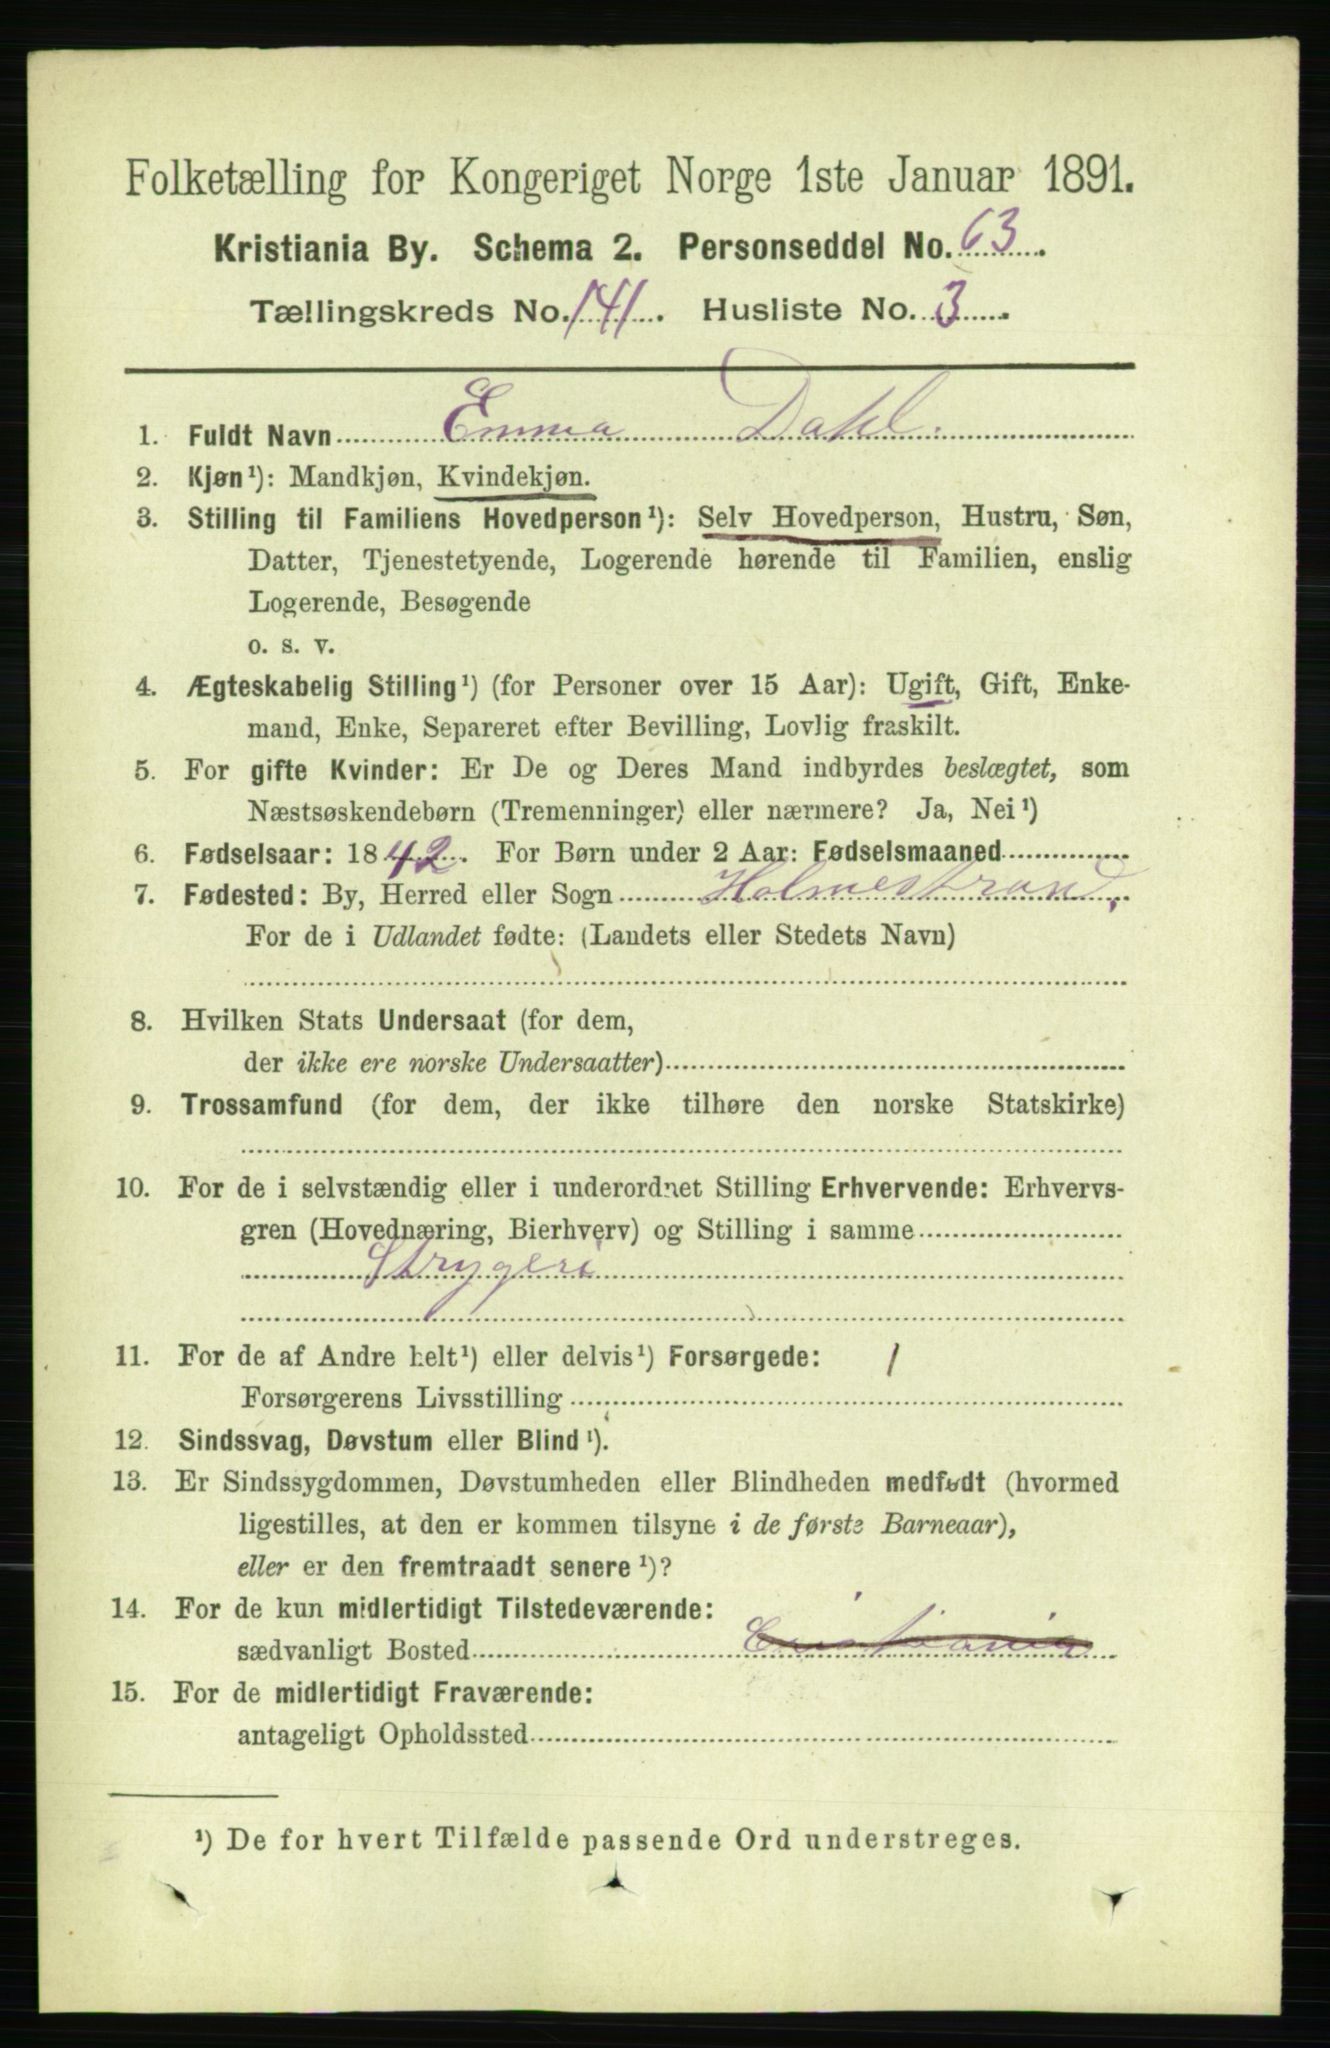 Folketælling for Kongeriget Norge 1ste Januar 1891.
Kristiania By. Schema 2. Personseddel No. 63.
Tællingskreds No. 141. Husliste No. 3.
1. Fuldt Navn Emma Dahl.
2. Kjøn¹): Mandkjøn, Kvindekjøn.
3. Stilling til Familiens Hovedperson¹): Selv Hovedperson, Hustru, Søn,
Datter, Tjenestetyende, Logerende hørende til Familien, enslig
Logerende, Besøgende
o. s. v.
4. Ægteskabelig Stilling¹) (for Personer over 15 Aar): Ugift, Gift, Enke-
mand, Enke, Separeret efter Bevilling, Lovlig fraskilt.
5. For gifte Kvinder: Er De og Deres Mand indbyrdes beslægtet, som
Næstsøskendebørn (Tremenninger) eller nærmere? Ja, Nei¹)
6. Fødselsaar: 1842. For Børn under 2 Aar: Fødselsmaaned
7. Fødested: By, Herred eller Sogn Holmestrand,
For de i Udlandet fødte: (Landets eller Stedets Navn)
8. Hvilken Stats Undersaat (for dem,
der ikke ere norske Undersaatter)
9. Trossamfund (for dem, der ikke tilhøre den norske Statskirke)
10. For de i selvstændig eller i underordnet Stilling Erhvervende: Erhvervs-
gren (Hovednæring, Bierhverv) og Stilling i samme
Strygeri
11. For de af Andre helt¹) eller delvis¹) Forsørgede: 1
Forsørgerens Livsstilling
12. Sindssvag, Døvstum eller Blind¹).
13. Er Sindssygdommen, Døvstumheden eller Blindheden medfødt (hvormed
ligestilles, at den er kommen tilsyne i de første Barneaar),
eller er den fremtraadt senere¹)?
14. For de kun midlertidigt Tilstedeværende:
sædvanligt Bosted Cristiania
15. For de midlertidigt Fraværende:
antageligt Opholdssted
¹) De for hvert Tilfælde passende Ord understreges.